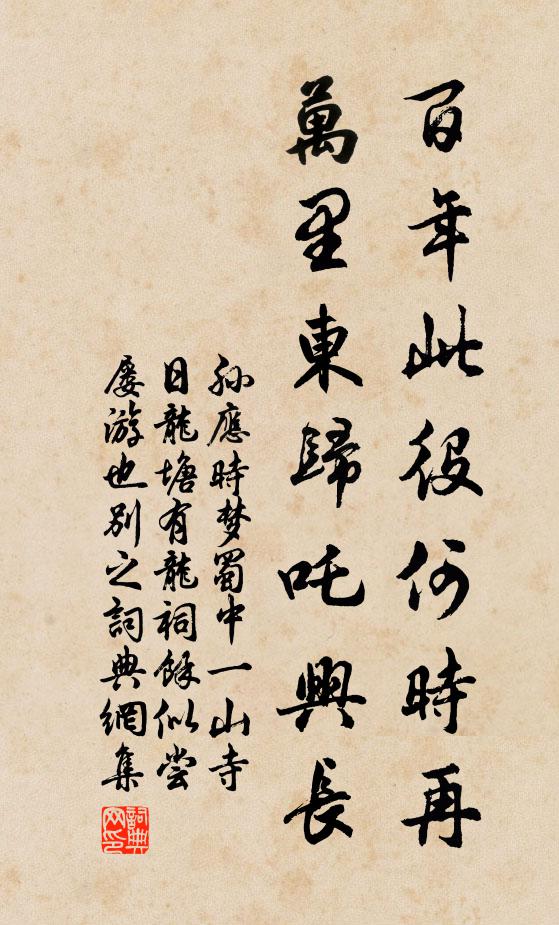 百年此役何時再
萬里東歸吒興長
孫應時梦蜀中一山寺
日龍塘有龍祠餘似尝
屡游也别之詞典網集
詞典网印